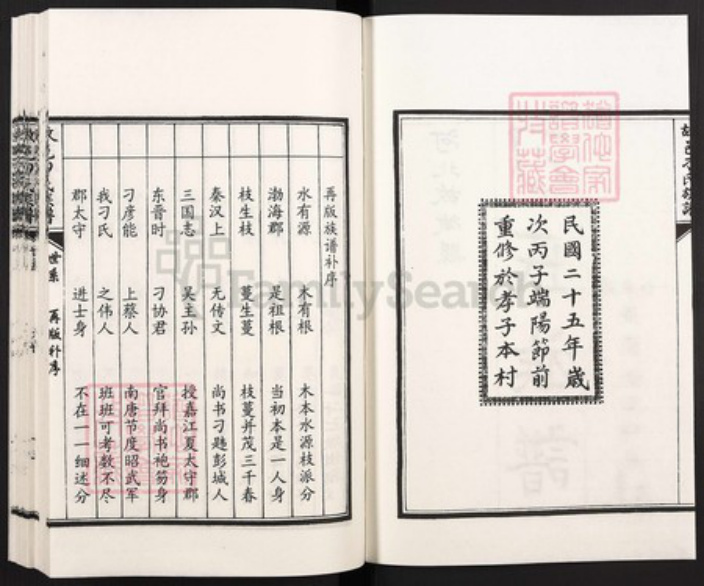 民國二十五年歲
次丙子端陽節前
重修於孝子本村
再版族谱补序
水有源 木有根 木本水源枝派分
渤海郡 是祖根 当初本是一人身
枝生枝 蔓生蔓 枝蔓并茂三千春
秦汉上 无传文 尚书刁韪彭城人
三国志 吴主孙 授嘉江夏太守郡
东晋时 刁协君 官拜尚书袍笏身
刁彦能 上蔡人 南唐节度昭武军
我刁氏 之伟人 班班可考数不尽
郡太守 进士身 不在一一细述分
世系 再版补序
FamilySearch